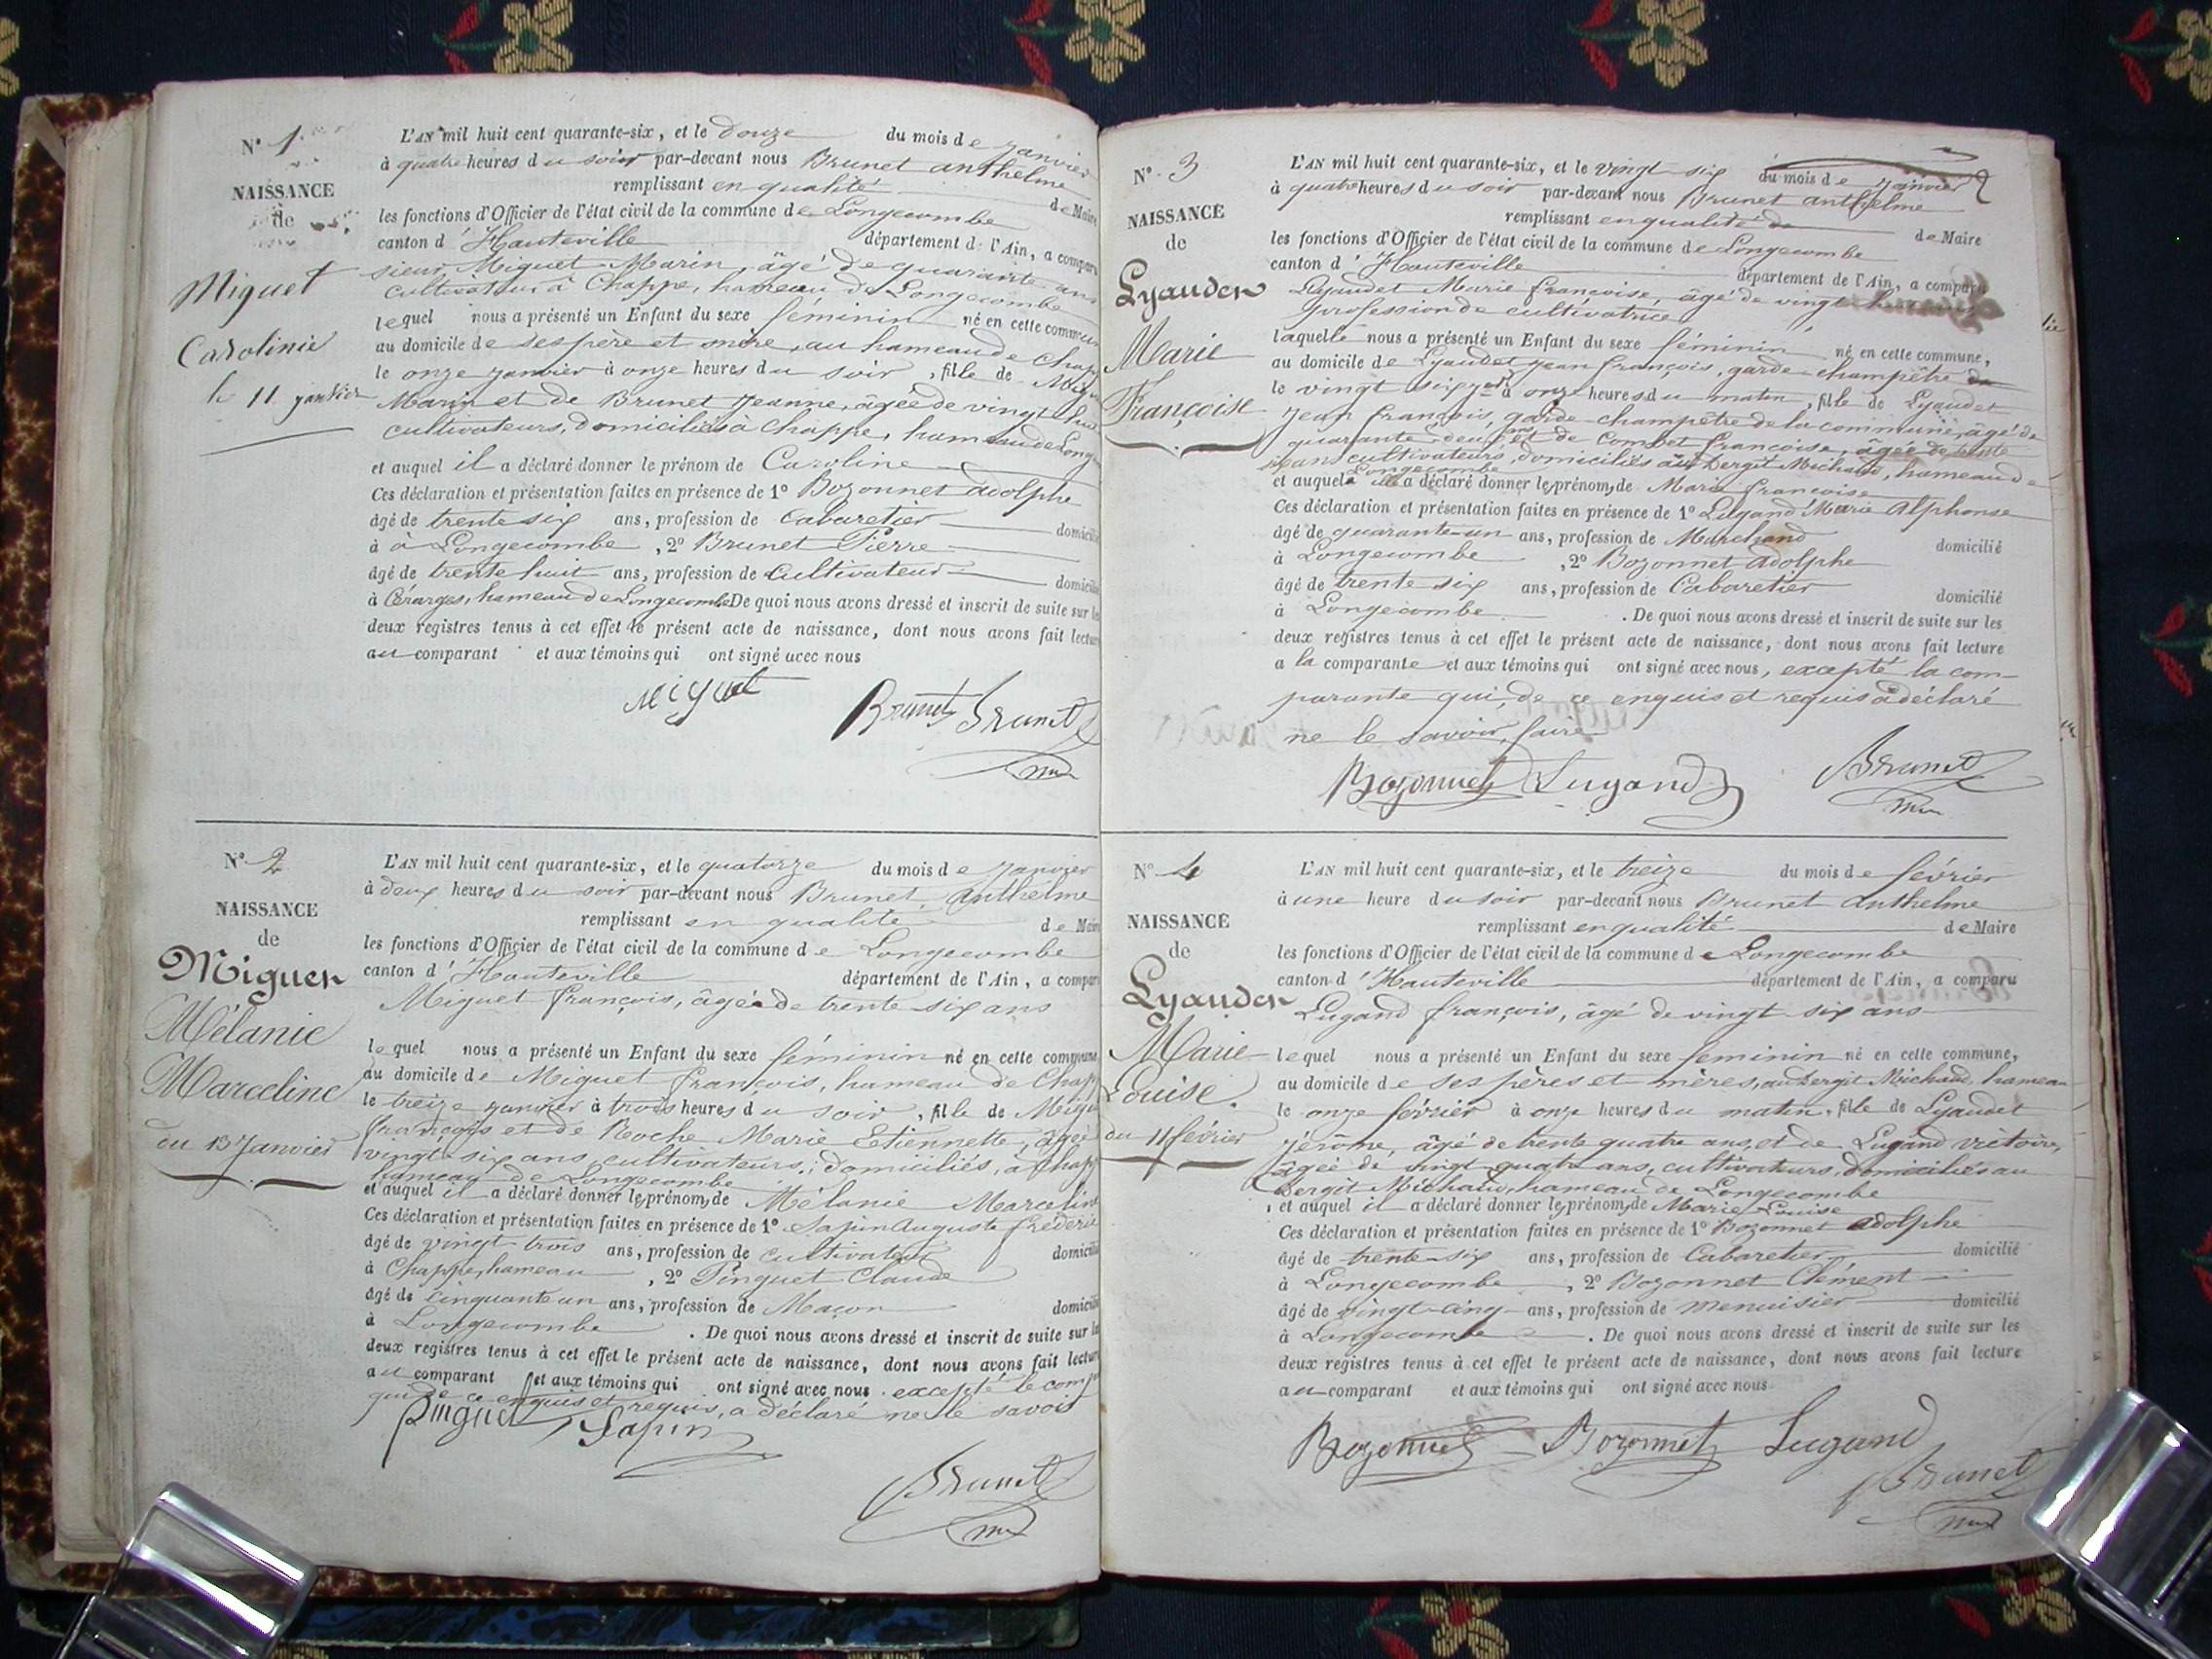 N° 1
NAISSANCE
de
Miguet
Caroline
le 11 janvier
L'AN mil huit cent quarante-six, et le douze du mois de janvier
à quatre heures du soir par-devant nous Brunet anthelme
remplissant en qualité de Maire
les fonctions d'Officier de l'état civil de la commune de Longecombe
canton d'Hauteville département de l'Ain, a comparu
sieur Miguet Marin, âgé de quarante ans
cultivateur à Chappe, hameau de Longecombe
lequel nous a présenté un Enfant du sexe féminin né en cette commune
au domicile de ses père et mère, au hameau de Chapp
le onze janvier à onze heures du soir, fille de Migu
Marin et de Brunet Jeanne, âgée de vingt hui
cultivateurs, domiciliés à Chappe, hameau de Long
et auquel il a déclaré donner le prénom de Caroline
Ces déclaration et présentation faites en présence de 1° Bozonnet adolphe
âgé de trente six ans, profession de Cabaretier domicilié
à à Longecombe, 2° Brunet Pierre
âgé de trente huit ans, profession de Cultivateur domicilié
à Cérarges, hameau de Longecombe De quoi nous avons dressé et inscrit de suite sur les
deux registres tenus à cet effet le présent acte de naissance, dont nous avons fait lecture
au comparant et aux témoins qui ont signé avec nous
Miguet
Brunet Brunet
N° 2
NAISSANCE
de
Miguet
Mélanie
Marceline
du 13 Janvier
L'AN mil huit cent quarante-six, et le quatorze du mois de janvier
à deux heures du soir par-devant nous Brunet Anthelme
remplissant en qualité de Maire
les fonctions d'Officier de l'état civil de la commune de Longecombe
canton d'Hauteville département de l'Ain, a comparu
Miguet françois, âgé de trente six ans
lequel nous a présenté un Enfant du sexe féminin né en cette commune
au domicile de Miguet françois, hameau de Chapp
le treize janvier à trois heures du soir, fille de Migu
françois et de Roche Marie Etiennette, âgée
vingt-six ans, cultivateurs, domiciliés, à Chapp
hameau de Longecombe
et auquel il a déclaré donner le, prénom, de Mélanie Marceline
Ces déclaration et présentation faites en présence de 1° Sapin Auguste frédéric
âgé de vingt-trois ans, profession de cultivateur domicilié
à Chappe, hameau, 2° Pinguet Claude
âgé de cinquante un ans, profession de Maçon domicilié
à Longecombe. De quoi nous avons dressé et inscrit de suite sur les
deux registres tenus à cet effet le présent acte de naissance, dont nous avons fait lecture
au comparant et aux témoins qui ont signé avec nous excepté le comp
qui de ce enquis et requis, a déclaré ne le savoir
Pinguet Sapin
Brunet
N° 3
NAISSANCE
de
Lyaudet
Marie
Françoise
L'AN mil huit cent quarante-six, et le vingt six du mois de janvier
à quatre heures du soir par-devant nous Brunet anthelme
remplissant en qualité de de Maire
les fonctions d'Officier de l'état civil de la commune de Longecombe
canton d'Hauteville département de l'Ain, a comparu
Lyaudet Marie françoise, âgé de vingt
profession de cultivatrice
laquelle nous a présenté un Enfant du sexe féminin né en cette commune,
au domicile de Lyaudet jean françois, garde-champêtre
le vingt six à onze heures du matin, fille de Lyaudet
Jean françois, garde-champêtre de la commune, âgé de
quarante-deux ans et de Combet françoise, âgée de trente
six ans cultivateurs, domiciliés au bergit Michaud, hameau de
Longecombe
et auquel a déclaré donner le, prénom, de Marie françoise
Ces déclaration et présentation faites en présence de 1° Lugand Marie Alphonse
âgé de quarante-un ans, profession de Marchand domicilié
à Longecombe, 2° Bozonnet adolphe
âgé de trente six ans, profession de Cabaretier domicilié
à Longecombe. De quoi nous avons dressé et inscrit de suite sur les
deux registres tenus à cet effet le présent acte de naissance, dont nous avons fait lecture
a la comparante et aux témoins qui ont signé avec nous, excepté la com-
parante qui, de ce enquis et requis a déclaré
ne le savoir faire
Bozonnet Lugand Brunet
N° 4
NAISSANCE
de
Lyaudet
Marie
Louise
du 11 février
L'AN mil huit cent quarante-six, et le treize du mois de février
à une heure du soir par-devant nous Brunet Anthelme
remplissant en qualité de Maire
les fonctions d'Officier de l'état civil de la commune de Longecombe
canton d'Hauteville département de l'Ain, a comparu
Lugand françois, âgé de vingt six ans
lequel nous a présenté un Enfant du sexe féminin né en cette commune,
au domicile de ses pères et mères, au bergit Michaud, hameau
le onze février à onze heures du matin, fille de Lyaudet
jérôme, âgé de trente quatre ans, et de Lugand victoire,
âgée de vingt-quatre ans, cultivateurs, domiciliés au
bergit Michaud, hameau de Longecombe
et auquel il a déclaré donner le, prénom, de Marie Louise
Ces déclaration et présentation faites en présence de 1° Bozonnet adolphe
âgé de trente-six ans, profession de Cabaretier domicilié
à Longecombe, 2° Bozonnet Clément
âgé de vingt-cinq ans, profession de menuisier domicilié
à Longecombe. De quoi nous avons dressé et inscrit de suite sur les
deux registres tenus à cet effet le présent acte de naissance, dont nous avons fait lecture
au comparant et aux témoins qui ont signé avec nous
Bozonnet Bozonnet Lugand
Brunet